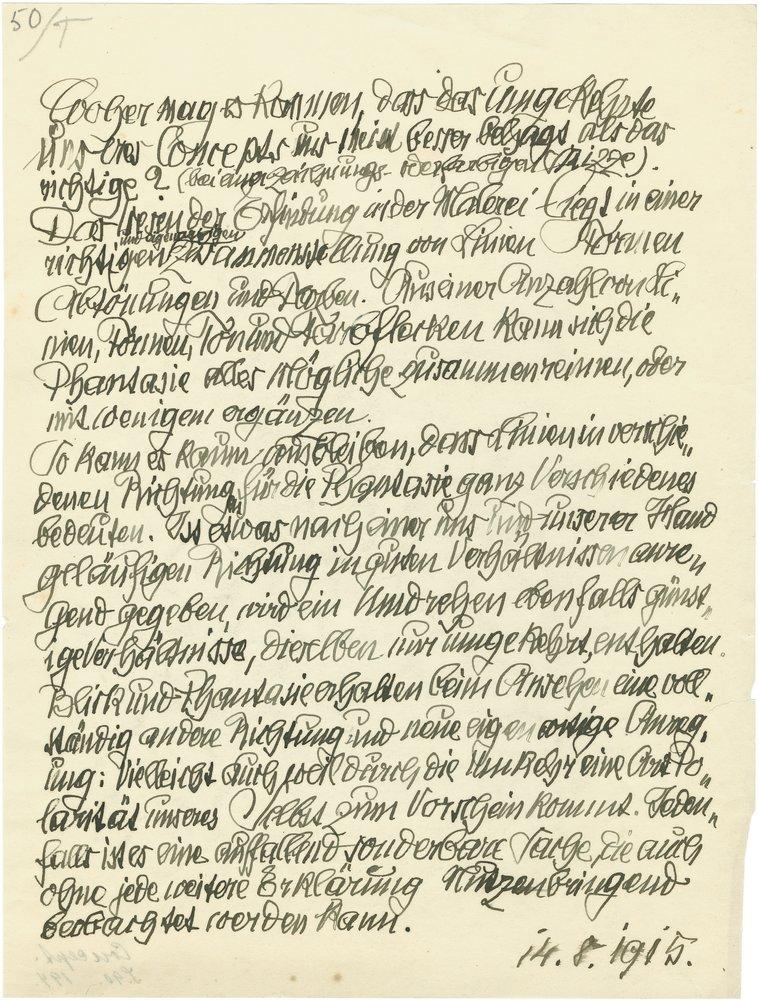 50/T
Woher mag es kommen, dass das Umgekehrte
unseres Concepts uns meist besser behagt als das
richtige? (bei einer Zeichnungs- oder farbigen Skizze).
Das Wesen der Erfindung in der Malerei liegt in einer
und eigenartigen
richtigen Zusammenstellung von Linien Formen
Abtönungen und Farben. Aus einer Anzahl von Li„
nien, Formen, Ton und Farbflecken kann sich die
Phantasie alles Mögliche zusammenreimen, oder
mit wenigem ergänzen.
So kann es kaum ausbleiben, dass Linien in verschie„
denen Richtungen für die Phantasie ganz Verschiedenes
bedeuten. Ist etwas nach einer uns und unserer Hand
geläufigen Richtung in guten Verhältnissen anre„
gend gegeben, wird ein Umdrehen ebenfalls günst„
ige Verhältnisse, dieselben nur umgekehrt, enthalten.
Blick und Phantasie erhalten beim Ansehen eine voll„
ständig andere Richtung und neue eigenartige Anreg„
ung: Vielleicht auch weil durch die Umkehr eine Art Po„
larität unseres Selbst zum Vorschein kommt. Jeden„
falls ist es eine auffallend sonderbare Sache, die auch
ohne jede weitere Erklärung Nutzenbringend
beobachtet werden kann.
14. 8. 1915.